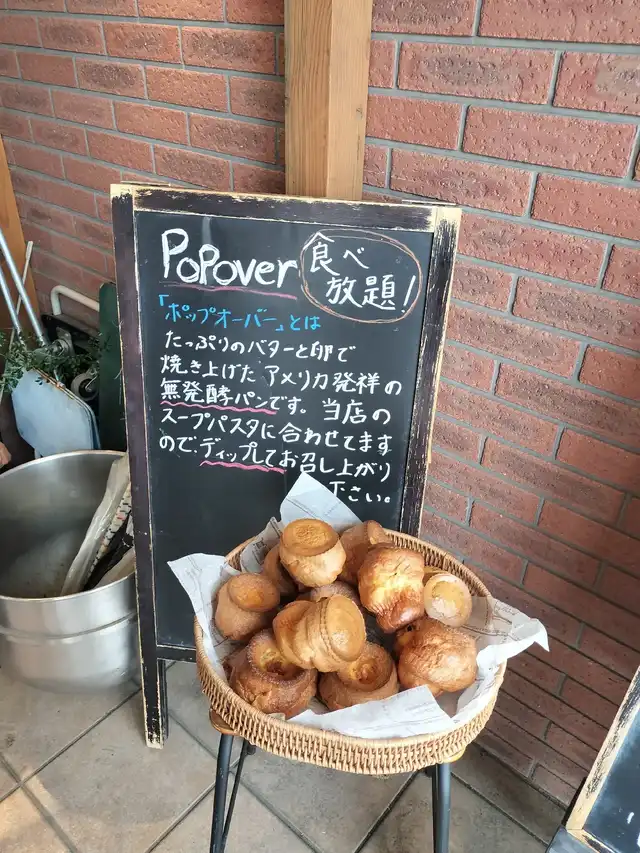 Popover
食べ
放題!
「ポップオーバー」とは
たっぷりのバターと卵で
焼き上げたアメリカ発祥の
無発酵パンです。当店の
スープパスタに合わせてます
ので、ディップしてお召し上がり
下さい。